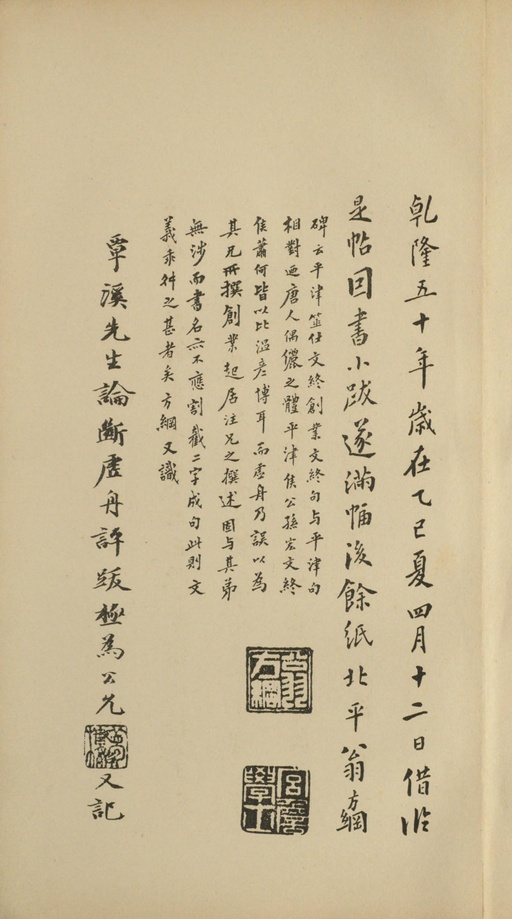 乾隆五十年歲在乙巳夏四月十二日借臨
是帖因書小跋遂滿幅後餘紙北平翁方綱
碑云平津筮仕文終創業文終句与平津句
相對迺唐人偶儷之體平津侯公孫宏文終
侯蕭何皆以比溫彥博耳而虛舟乃誤以為
其兄所撰創業起居注兄之撰述固与其弟
無涉而書名亦不應割截二字成句此則文
義乖舛之甚者矣方綱又識
翁方綱
宮詹學士
覃溪先生論斷虛舟許跋極為公允
又記